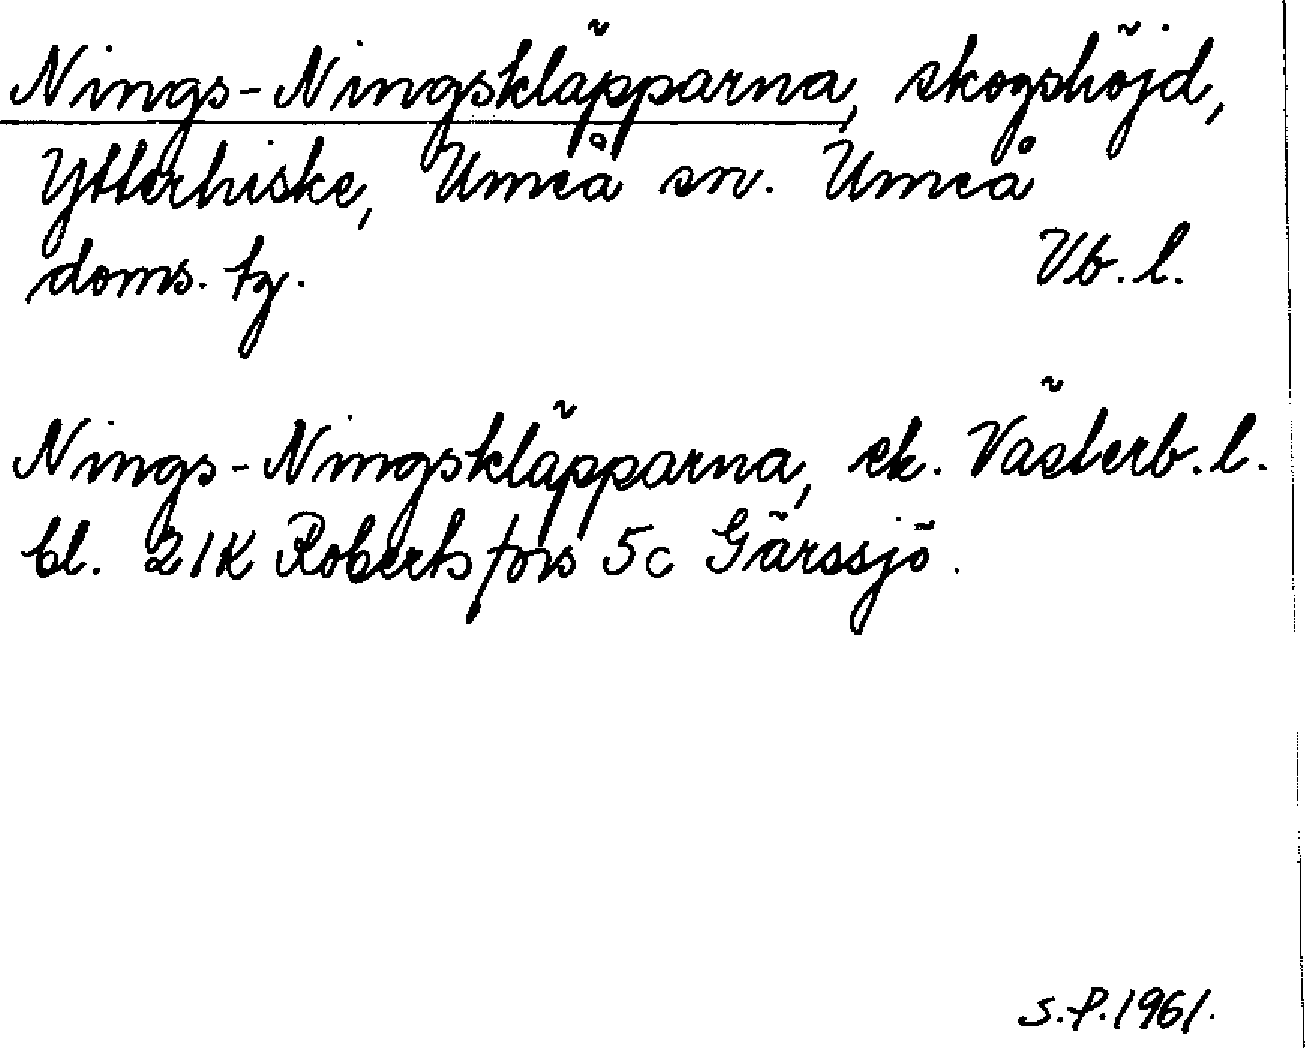 Nings-Ningskläpparna, skogshöjd,
Ytterhiske, Umeå sn. Umeå
doms. tg. Vb. l.
Nings-Ningskläpparna, ek. Västerb. l.
bl. 21K Robertsfors 5c Gärssjö.
S.P. 1961.